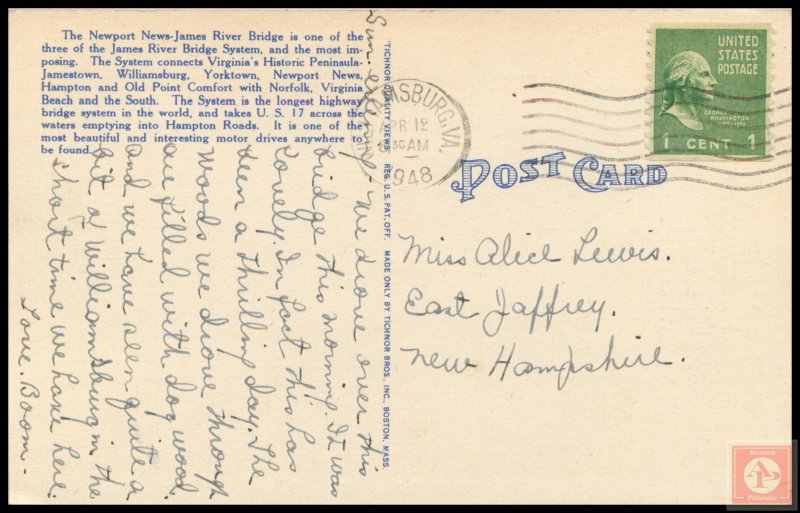 The Newport News-James River Bridge is one of the
three of the James River Bridge System, and the most im-
posing. The System connects Virginia's Historic Peninsula-
Jamestown, Williamsburg, Yorktown, Newport News,
Hampton and Old Point Comfort with Norfolk, Virginia
Beach and the South. The System is the longest highway
bridge system in the world, and takes U. S. 17 across the
waters emptying into Hampton Roads. It is one of the
most beautiful and interesting motor drives anywhere to
be found.
Sun. evening
We drove over this
bridge this morning. It was
lovely. In fact this has
been a thrilling day. The
Woods we drove through
are filled with dog wood
and we have seen quite a
bit of Williamsburg in the
short time we have here.
Love. Boom.
"TICHNOR QUALITY VIEWS" REG. U. S. PAT. OFF. MADE ONLY BY TICHNOR BROS., INC., BOSTON, MASS.
MSBURG, VA.
APR 12
30 AM
1948
UNITED
STATES
POSTAGE
GEORGE
WASHINGTON
1 CENT 1
POST CARD
Miss Alice Lewis.
East Jaffrey.
New Hampshire.
Ansonia
AP
Philatelic